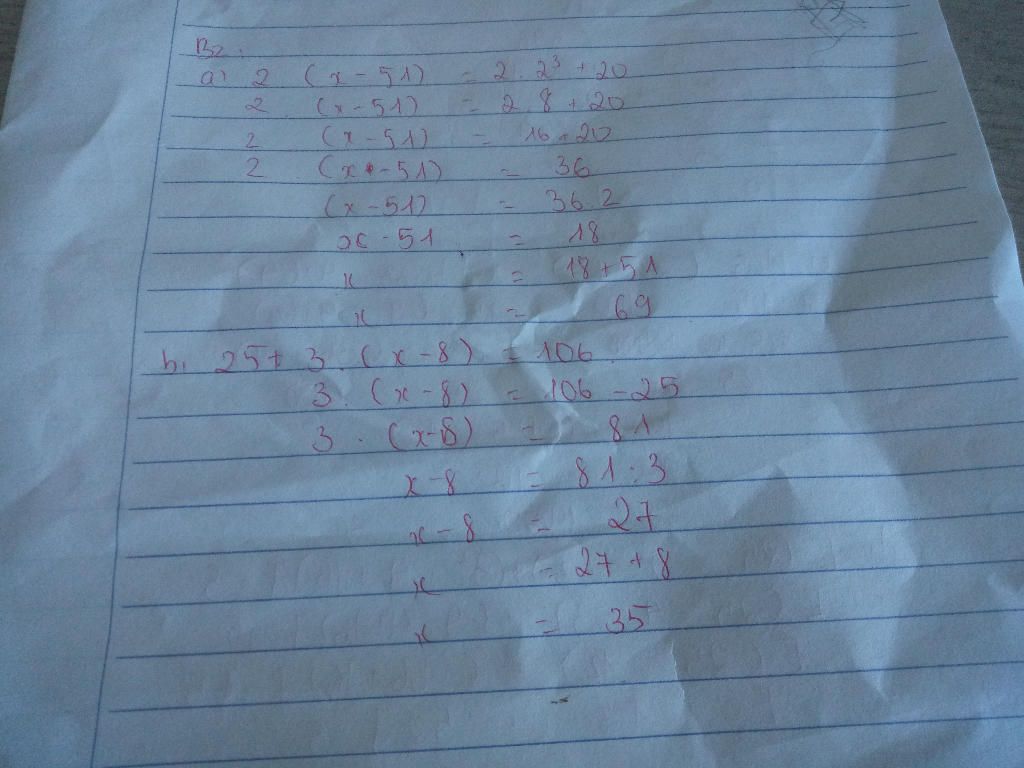 B2:
a) 2 (x - 51) = 2 . 2³ + 20
2 . (x - 51) = 2 . 8 + 20
2 (x - 51) = 16 + 20
2 . (x - 51) = 36
(x - 51) = 36.2
x - 51 = 18
x = 18 + 51
x = 69
b, 25 + 3 . (x - 8) = 106
3 . (x - 8) = 106 - 25
3 . (x - 8) = 81
x - 8 = 81 : 3
x - 8 = 27
x = 27 + 8
x = 35